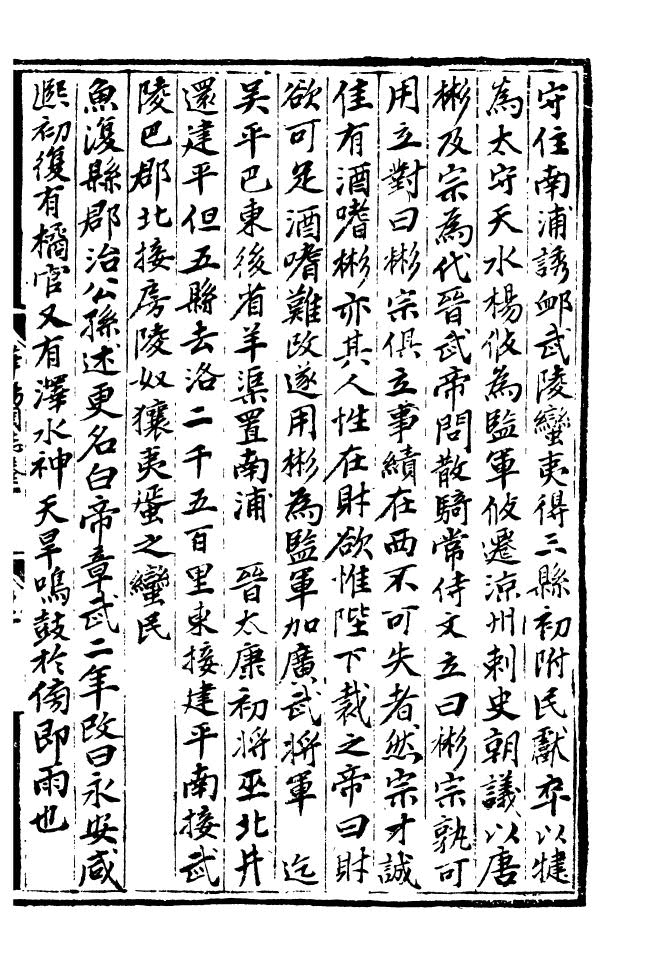 守住南浦誘䘏武陵蠻夷得三縣初附民獻卒以犍
為太守天水楊攸為監軍攸遷涼州刺史朝議以唐
彬及宗為代晉武帝問散騎常侍文立曰彬宗孰可
用立對曰彬宗俱立事績在西不可失者然宗才誠
佳有酒嗜彬亦其人性在財欲惟陛下裁之帝曰財
欲可足酒嗜難改遂用彬為監軍加廣武將軍 迄
吳平巴東後省羊渠置南浦 晉太康初將巫北井
還建平但五縣去洛二千五百里東接建平南接武
陵巴郡北接房陵奴獽夷蜑之蠻民
魚復縣郡治公孫述更名白帝章武二年改曰永安咸
熙初復有橘官又有澤水神天旱鳴鼓於傍即雨也